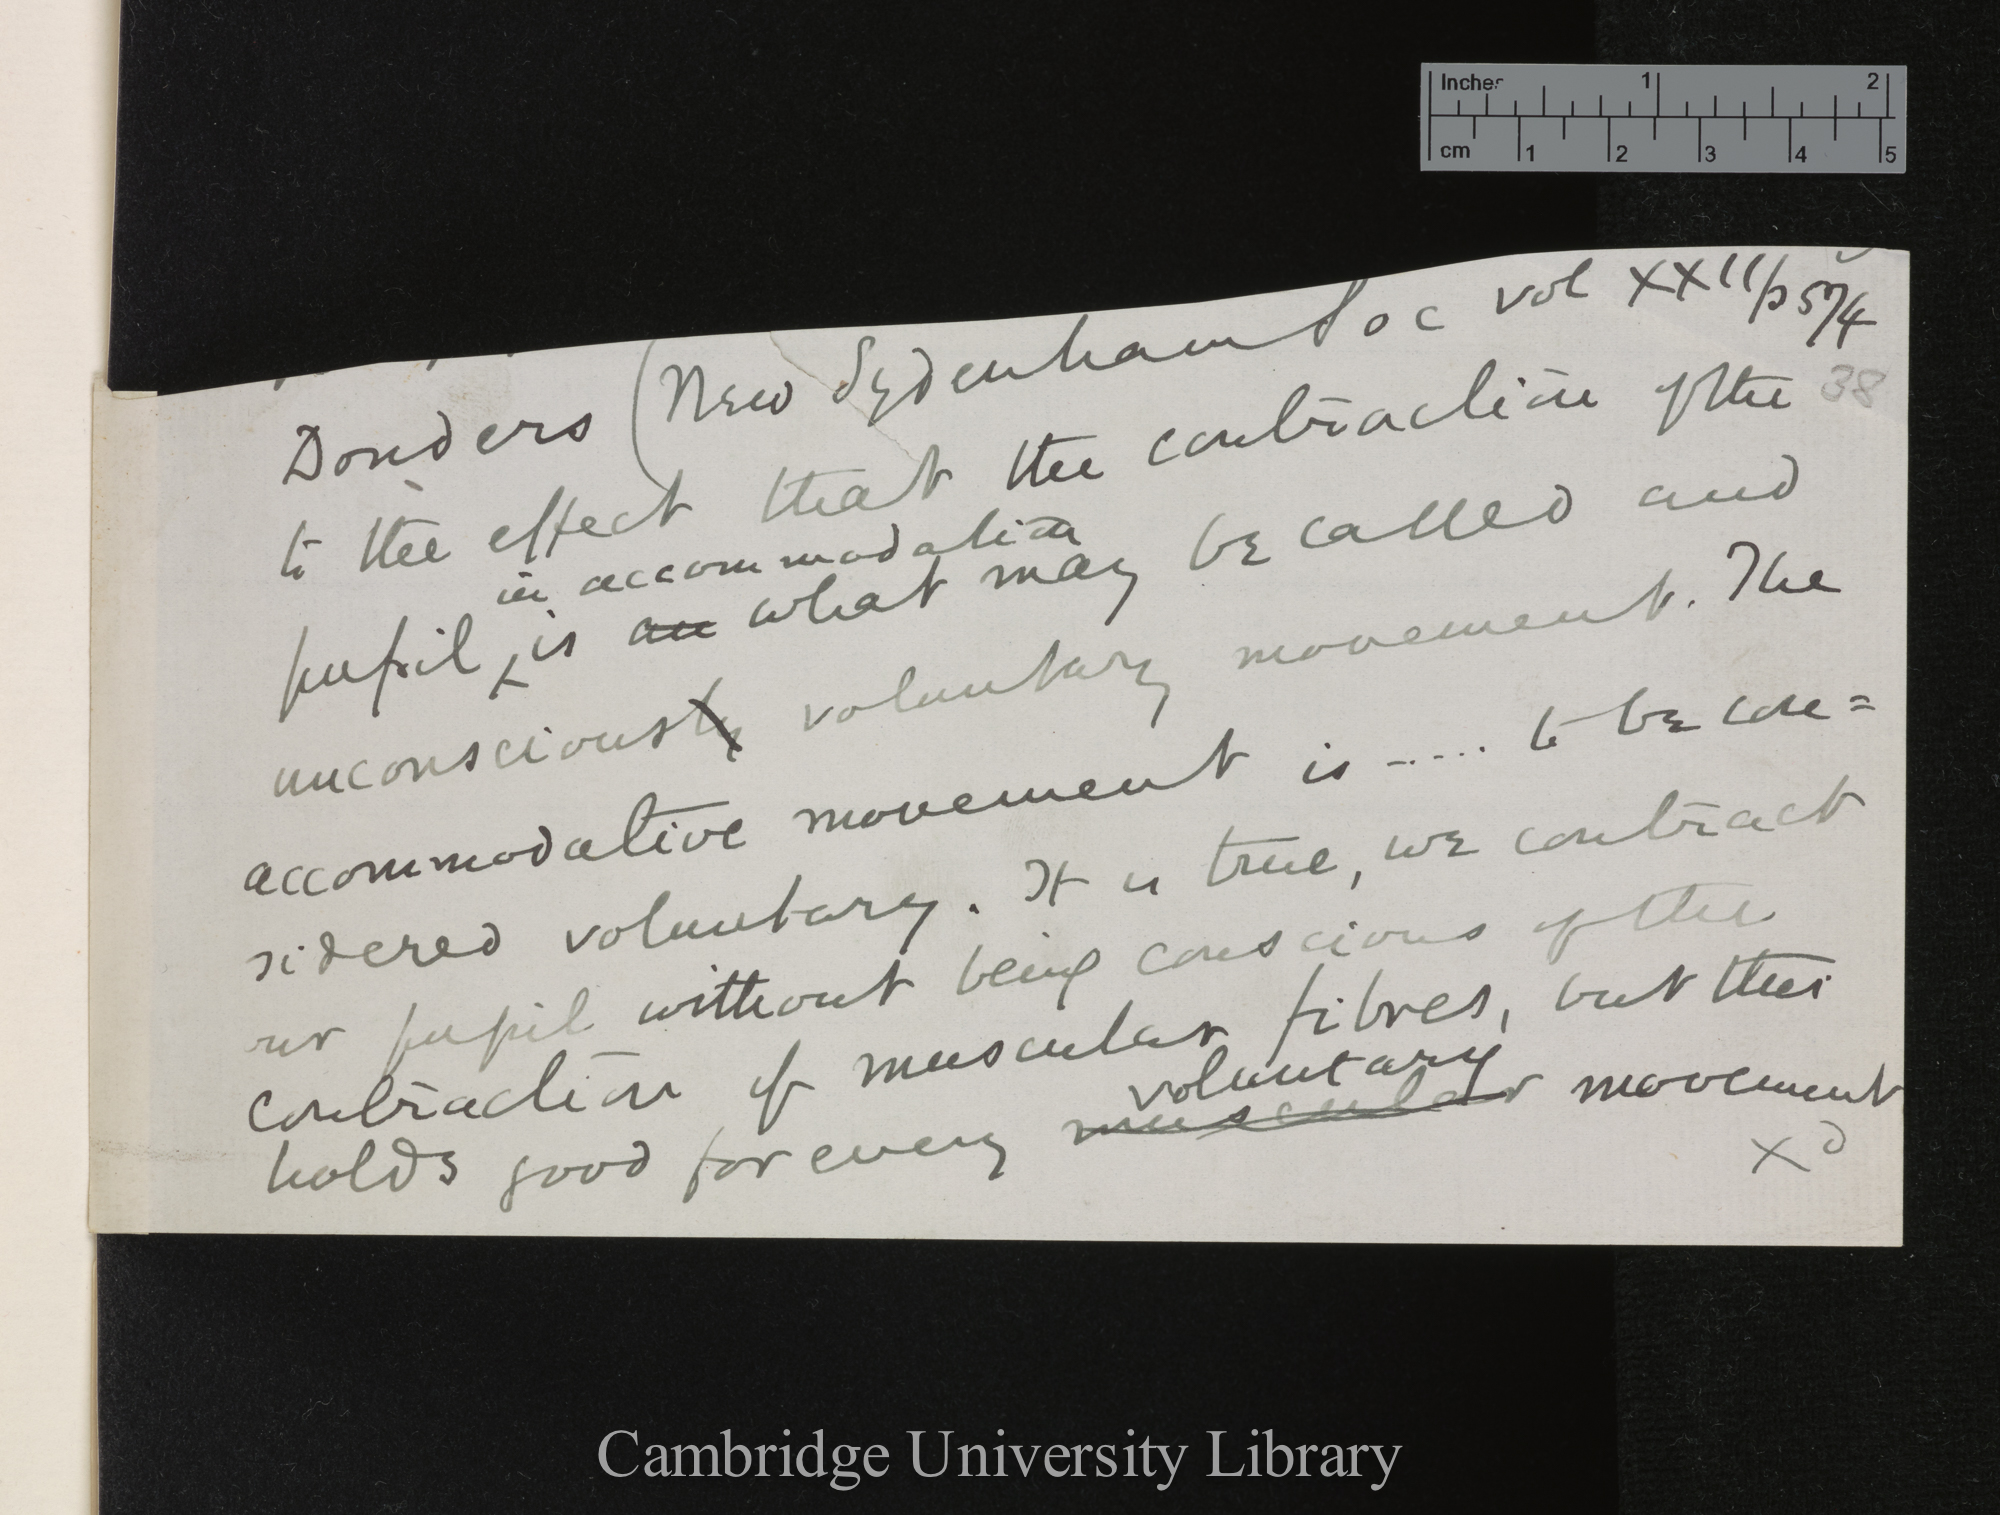 Inches 1 2
cm 1 2 3 4 5
Donders (New Sydenham Soc vol XXII p 574
38
to the effect that the contraction of the
in accommodation
pupil is an what may be called and
unconsciously voluntary movement. The
accommodative movement is ..... to be con=
sidered voluntary. It is true, we contract
our pupil without being conscious of the
contraction of muscular fibres, but this
voluntary
holds good for every muscular movement
Cambridge University Library